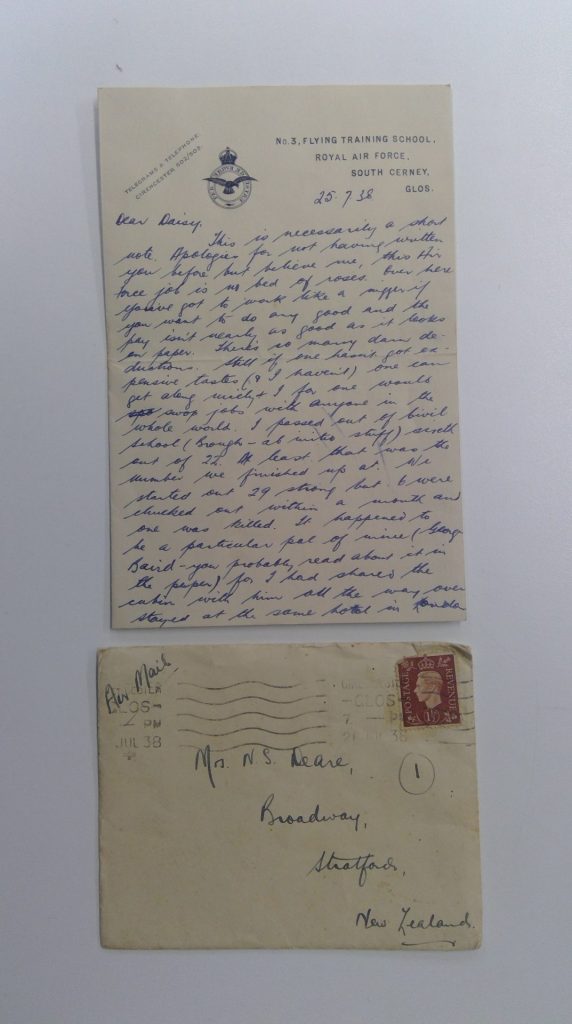 TELEGRAMS & TELEPHONE:
CIRENCESTER 502/503.
No. 3, FLYING TRAINING SCHOOL,
ROYAL AIR FORCE,
SOUTH CERNEY,
GLOS.
25.7.38
Dear Daisy,
This is necessarily a short
note. Apologies for not having written
you before but believe me, this Air
Force job is no bed of roses. Over here
you've got to work like a nigger if
you want to do any good and the
pay isn't nearly as good as it looks
on paper. There's so many darn de-
ductions. Still if one hasn't got ex-
pensive tastes (& I haven't) one can
get along nicely & I for one would
swop jobs with anyone in the
whole world. I passed out of Civil
School (Brough - ab initio stuff)
out of 22. At least that was the
number we finished up at. We
started out 29 strong but 6 were
chucked out within a month and
one was killed. It happened to
be a particular pal of mine (George
Baird - you probably read about it in
the paper) for I had shared the
cabin with him all the way over
stayed at the same hotel in London
Air Mail
GLOS
PM
JUL 38
GLOS
7
38
POSTAGE
REVENUE
Mrs. N.S. Deare,
1
Broadway,
Stratford,
New Zealand.